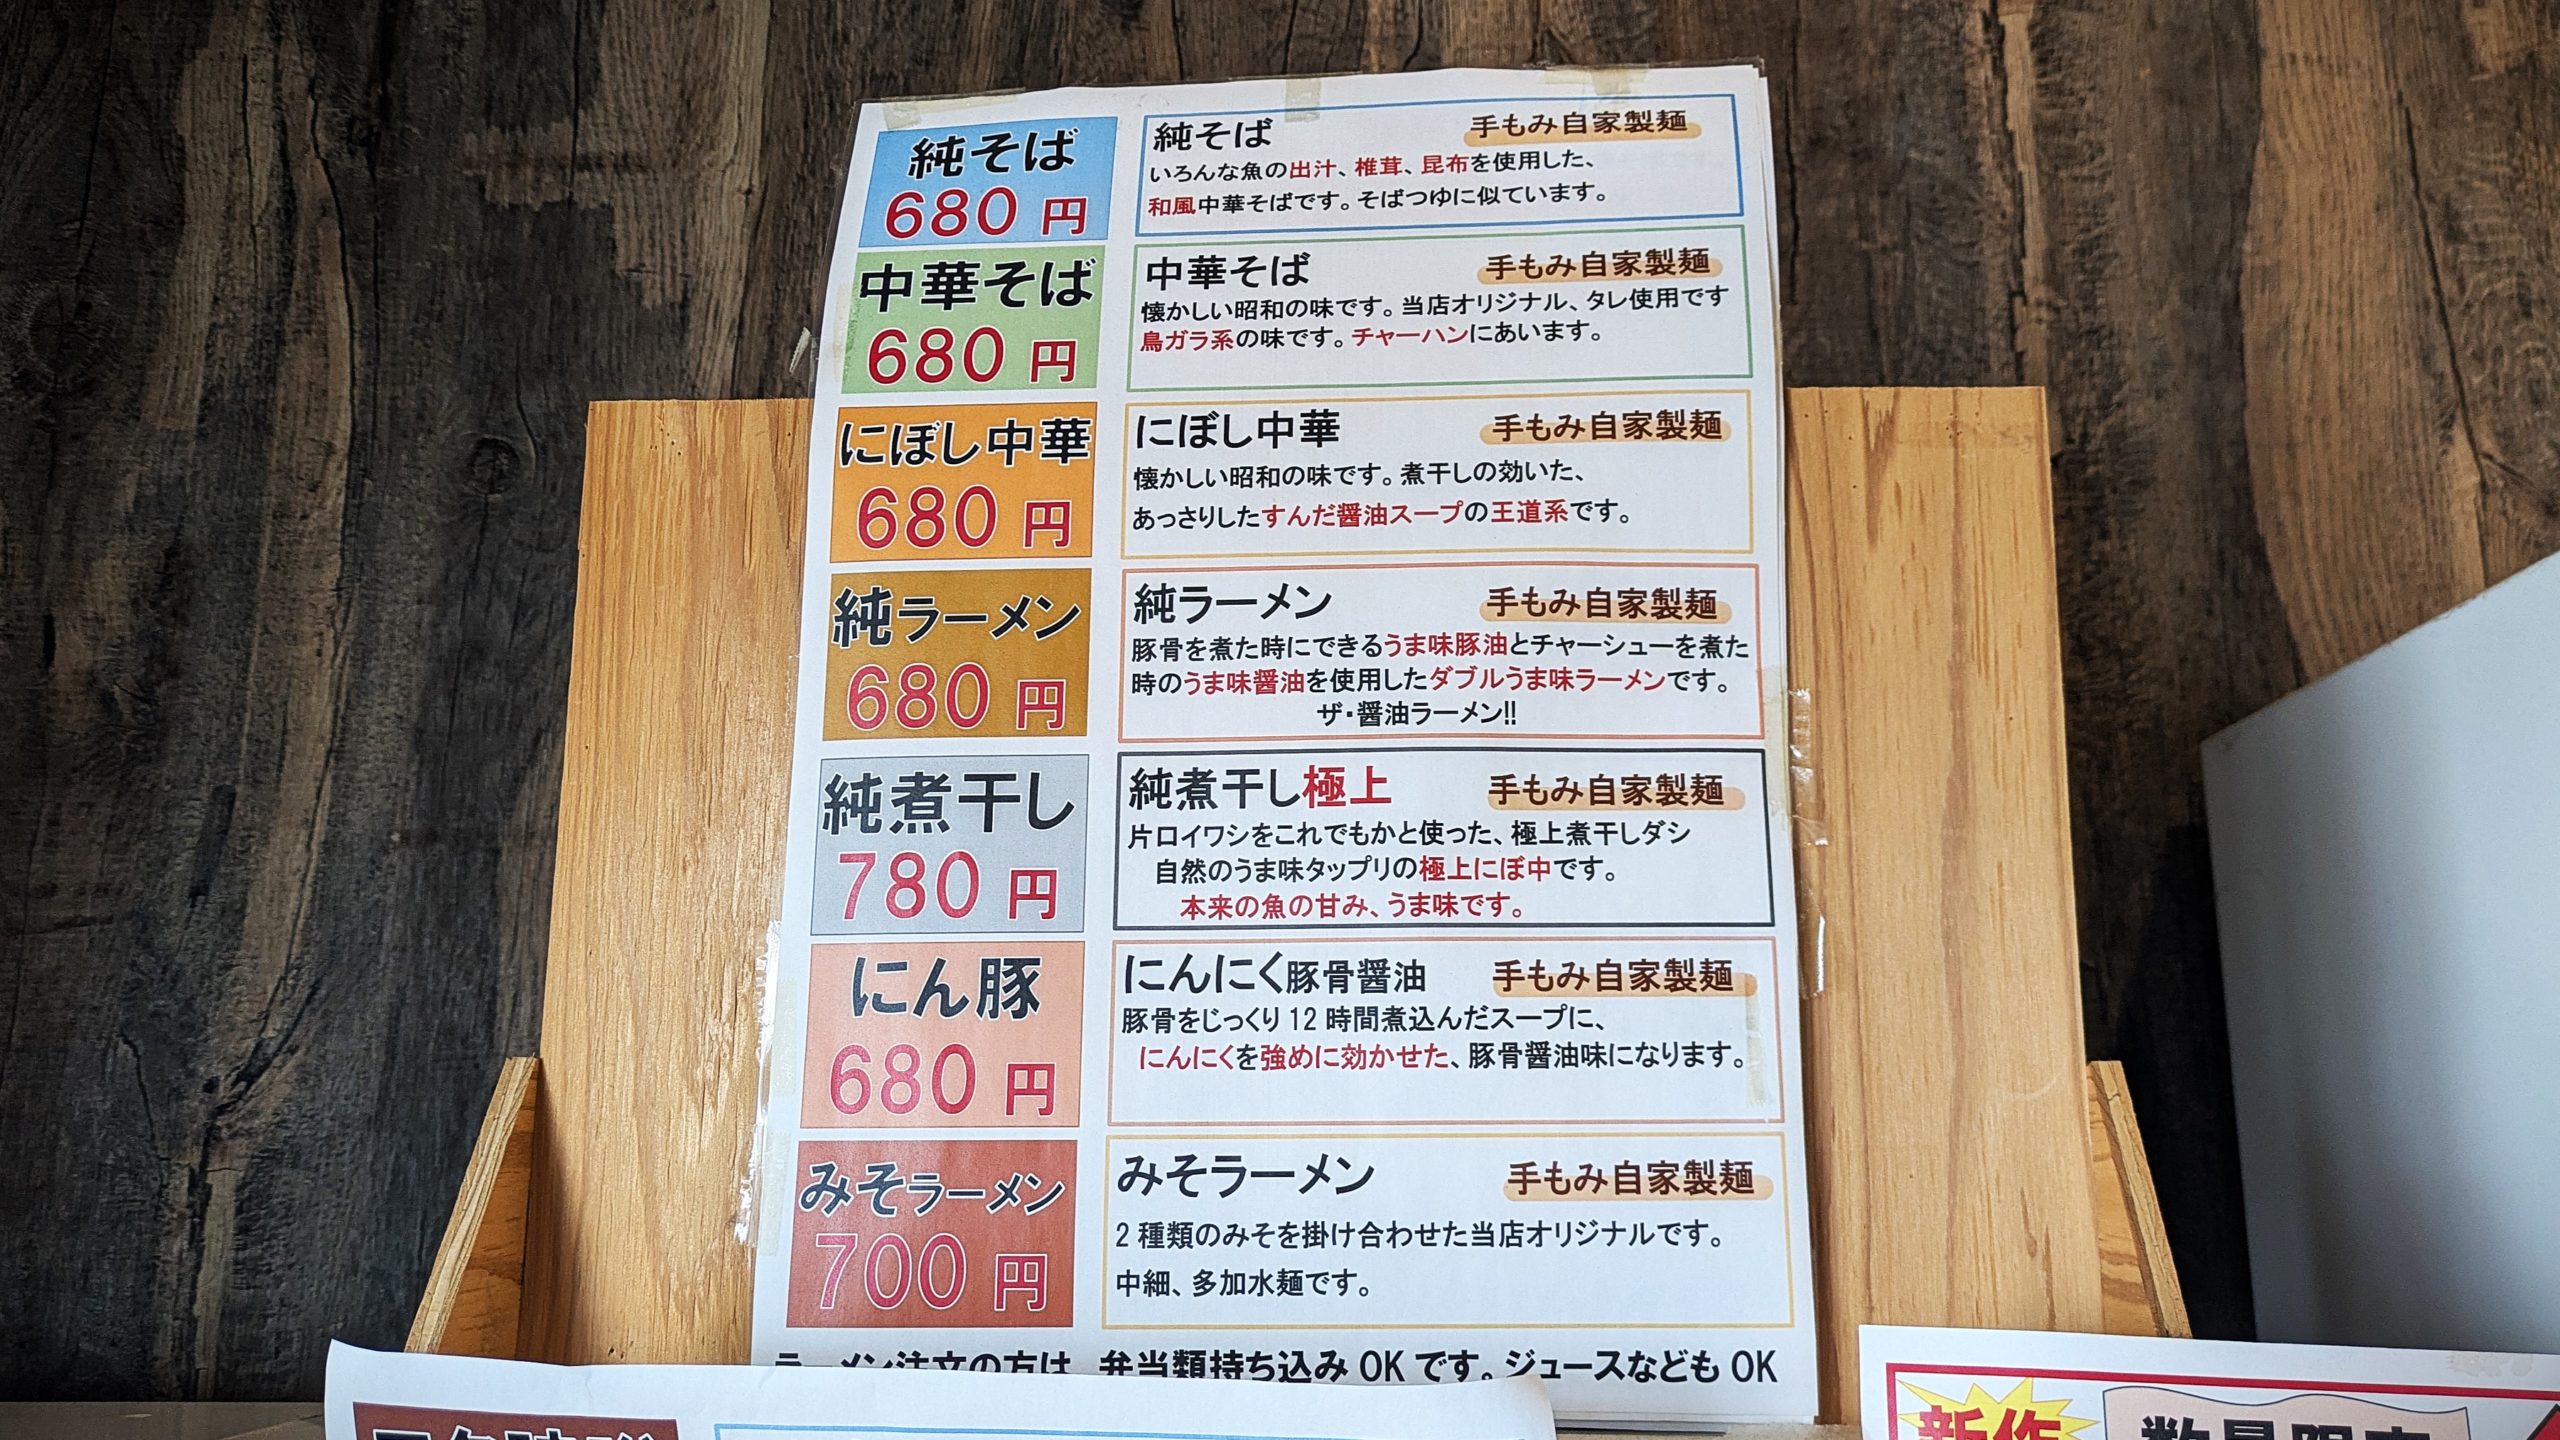 純そば
680 円
純そば 手もみ自家製麺
いろんな魚の出汁、椎茸、昆布を使用した、
和風中華そばです。そばつゆに似ています。
中華そば
680 円
中華そば 手もみ自家製麺
懐かしい昭和の味です。当店オリジナル、タレ使用です
鳥ガラ系の味です。チャーハンにあいます。
にぼし中華
680 円
にぼし中華 手もみ自家製麺
懐かしい昭和の味です。煮干しの効いた、
あっさりしたすんだ醤油スープの王道系です。
純ラーメン
680 円
純ラーメン 手もみ自家製麺
豚骨を煮た時にできるうま味豚油とチャーシューを煮た
時のうま味醤油を使用したダブルうま味ラーメンです。
ザ・醤油ラーメン!!
純煮干し
780 円
純煮干し極上 手もみ自家製麺
片口イワシをこれでもかと使った、極上煮干しダシ
自然のうま味タップリの極上にぼ中です。
本来の魚の甘み、うま味です。
にん豚
680 円
にんにく豚骨醤油 手もみ自家製麺
豚骨をじっくり 12 時間煮込んだスープに、
にんにくを強めに効かせた、豚骨醤油味になります。
みそラーメン
700 円
みそラーメン 手もみ自家製麺
2 種類のみそを掛け合わせた当店オリジナルです。
中細、多加水麺です。
ラーメン注文の方は、弁当類持ち込み OK です。ジュースなども OK
新作
数量限定